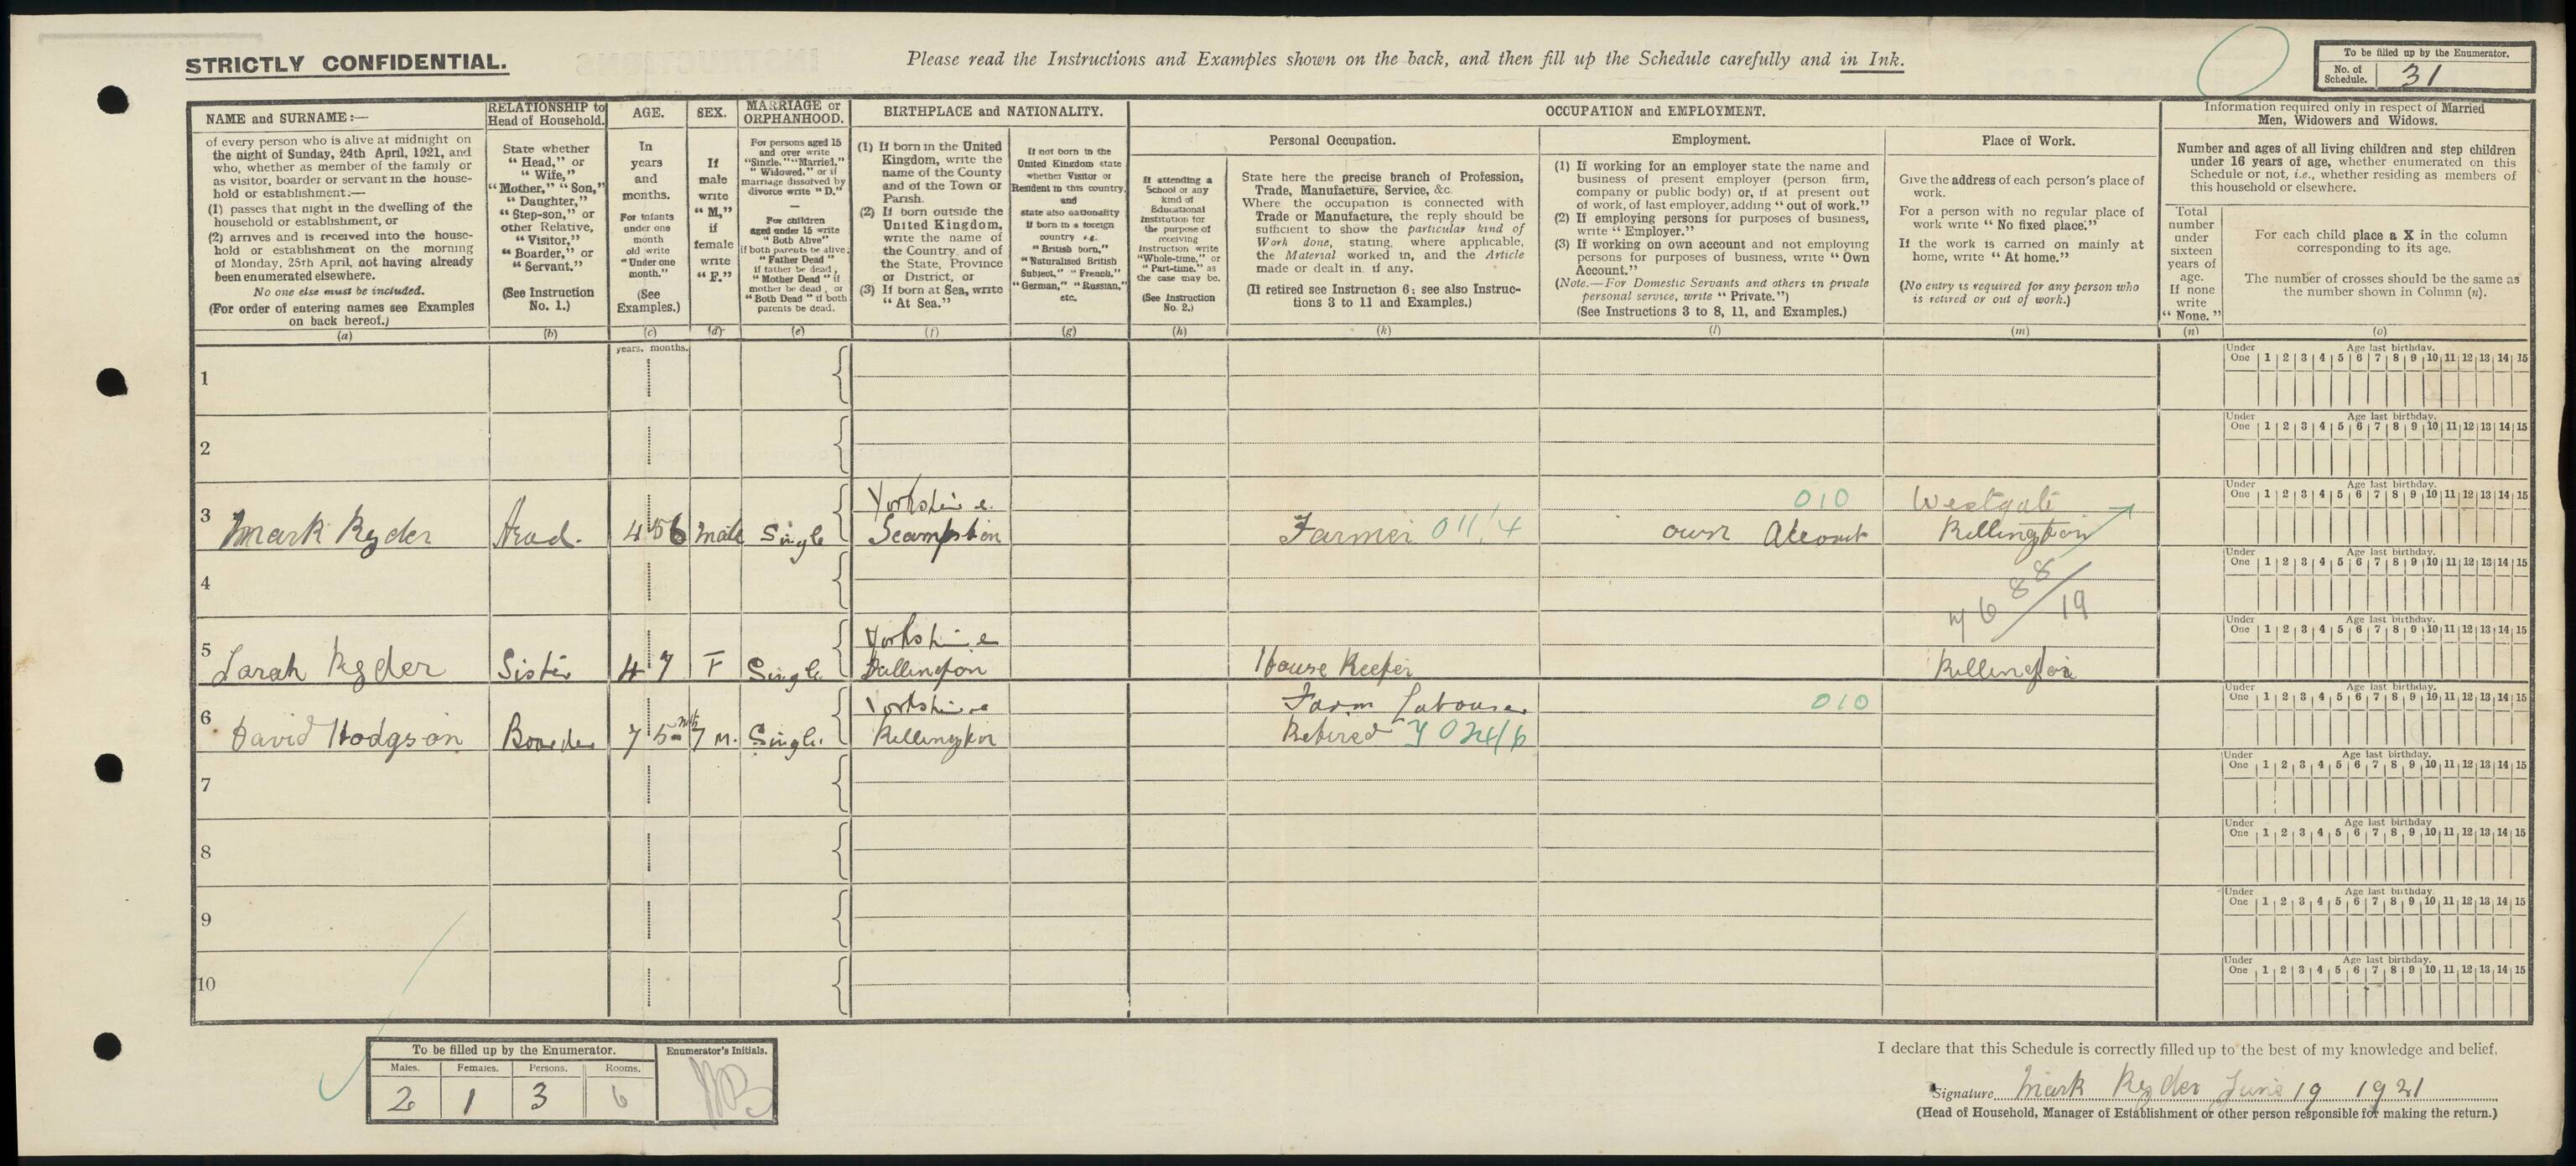 STRICTLY CONFIDENTIAL.
Please read the Instructions and Examples shown on the back, and then fill up the Schedule carefully and in Ink.
To be filled up by the Enumerator.
No. of Schedule. 31
NAME and SURNAME:—
of every person who is alive at midnight on
the night of Sunday, 24th April, 1921, and
who, whether as member of the family or
as visitor, boarder or servant in the house-
hold or establishment:—
(1) passes that night in the dwelling of the
household or establishment, or
(2) arrives and is received into the house-
hold or establishment on the morning
of Monday, 25th April, not having already
been enumerated elsewhere.
No one else must be included.
(For order of entering names see Examples
on back hereof.)
(a)
RELATIONSHIP to
Head of Household.
State whether
"Head," or
"Wife,"
"Mother," "Son,"
"Daughter,"
"Step-son," or
other Relative,
"Visitor,"
"Boarder," or
"Servant."
(See Instruction
No. 1.)
(b)
AGE.
In
years
and
months.
For infants
under one
month
old write
"Under one
month."
(See
Examples.)
(c)
SEX.
If
male
write
"M,"
if
female
write
"F."
(d)
MARRIAGE or
ORPHANHOOD.
For persons aged 15
and over write
"Single," "Married,"
"Widowed," or if
marriage dissolved by
divorce write "D."
—
For children
aged under 15 write
"Both Alive"
if both parents be alive,
"Father Dead"
if father be dead,
"Mother Dead" if
mother be dead, or
"Both Dead" if both
parents be dead.
(e)
BIRTHPLACE and NATIONALITY.
(1) If born in the United
Kingdom, write the
name of the County
and of the Town or
Parish.
(2) If born outside the
United Kingdom,
write the name of
the Country, and of
the State, Province
or District, or
(3) If born at Sea, write
"At Sea."
(f)
If not born in the
United Kingdom state
whether Visitor or
Resident in this country,
and
state also nationality
if born in a foreign
country e.g.
"British born,"
"Naturalised British
Subject," "French,"
"German," "Russian,"
etc.
(g)
OCCUPATION and EMPLOYMENT.
If attending a
School or any
kind of
Educational
Institution for
the purpose of
receiving
instruction write
"Whole-time," or
"Part-time," as
the case may be.
(See Instruction
No. 2.)
(h)
Personal Occupation.
State here the precise branch of Profession,
Trade, Manufacture, Service, &c.
Where the occupation is connected with
Trade or Manufacture, the reply should be
sufficient to show the particular kind of
Work done, stating, where applicable,
the Material worked in, and the Article
made or dealt in, if any.
(If retired see Instruction 6; see also Instruc-
tions 3 to 11 and Examples.)
(k)
Employment.
(1) If working for an employer state the name and
business of present employer (person, firm,
company or public body) or, if at present out
of work, of last employer, adding "out of work."
(2) If employing persons for purposes of business,
write "Employer."
(3) If working on own account and not employing
persons for purposes of business, write "Own
Account."
(Note.—For Domestic Servants and others in private
personal service, write "Private.")
(See Instructions 3 to 8, 11, and Examples.)
(l)
Place of Work.
Give the address of each person's place of
work.
For a person with no regular place of
work write "No fixed place."
If the work is carried on mainly at
home, write "At home."
(No entry is required for any person who
is retired or out of work.)
(m)
Information required only in respect of Married
Men, Widowers and Widows.
Number and ages of all living children and step children
under 16 years of age, whether enumerated on this
Schedule or not, i.e., whether residing as members of
this household or elsewhere.
Total
number
under
sixteen
years of
age.
If none
write
"None."
(n)
For each child place a X in the column
corresponding to its age.
The number of crosses should be the same as
the number shown in Column (n).
(o)
years. months.
1
Under One Age last birthday. 1 2 3 4 5 6 7 8 9 10 11 12 13 14 15
2
Under One Age last birthday. 1 2 3 4 5 6 7 8 9 10 11 12 13 14 15
3 Mark Ryder Head. 45 6 Male Single Yorkshire Scampston Farmer 011/4 010 own Account Westgate Rillington
Under One Age last birthday. 1 2 3 4 5 6 7 8 9 10 11 12 13 14 15
4
19
Under One Age last birthday. 1 2 3 4 5 6 7 8 9 10 11 12 13 14 15
5 Sarah Ryder Sister 47 F Single Yorkshire Rillington House Keeper Rillington
Under One Age last birthday. 1 2 3 4 5 6 7 8 9 10 11 12 13 14 15
6 David Hodgson Boarder 75 7 M. Single. Yorkshire Rillington Farm Labourer Retired 010
Under One Age last birthday. 1 2 3 4 5 6 7 8 9 10 11 12 13 14 15
7
Under One Age last birthday. 1 2 3 4 5 6 7 8 9 10 11 12 13 14 15
8
Under One Age last birthday 1 2 3 4 5 6 7 8 9 10 11 12 13 14 15
9
Under One Age last birthday. 1 2 3 4 5 6 7 8 9 10 11 12 13 14 15
10
Under One Age last birthday. 1 2 3 4 5 6 7 8 9 10 11 12 13 14 15
To be filled up by the Enumerator.
Males. Females. Persons. Rooms.
2 1 3 6
Enumerator's Initials.
I declare that this Schedule is correctly filled up to the best of my knowledge and belief.
Signature Mark Ryder June 19 1921
(Head of Household, Manager of Establishment or other person responsible for making the return.)